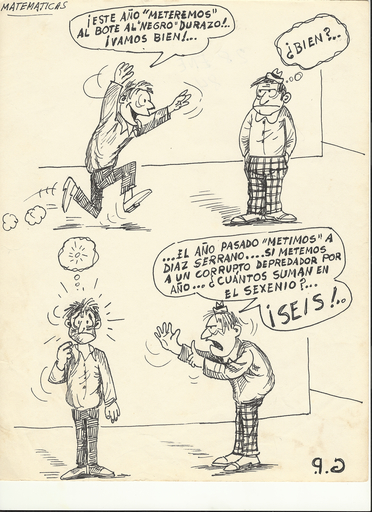 MATEMATICAS
¡ESTE AÑO "METEREMOS"
AL BOTE AL "NEGRO" DURAZO!..
¡VAMOS BIEN!...
¿BIEN?...
...EL AÑO PASADO "METIMOS" A
DIAZ SERRANO....SI METEMOS
A UN CORRUPTO DEPREDADOR POR
AÑO...¿CUÁNTOS SUMAN EN
EL SEXENIO?...
¡SEIS!..
G.P.